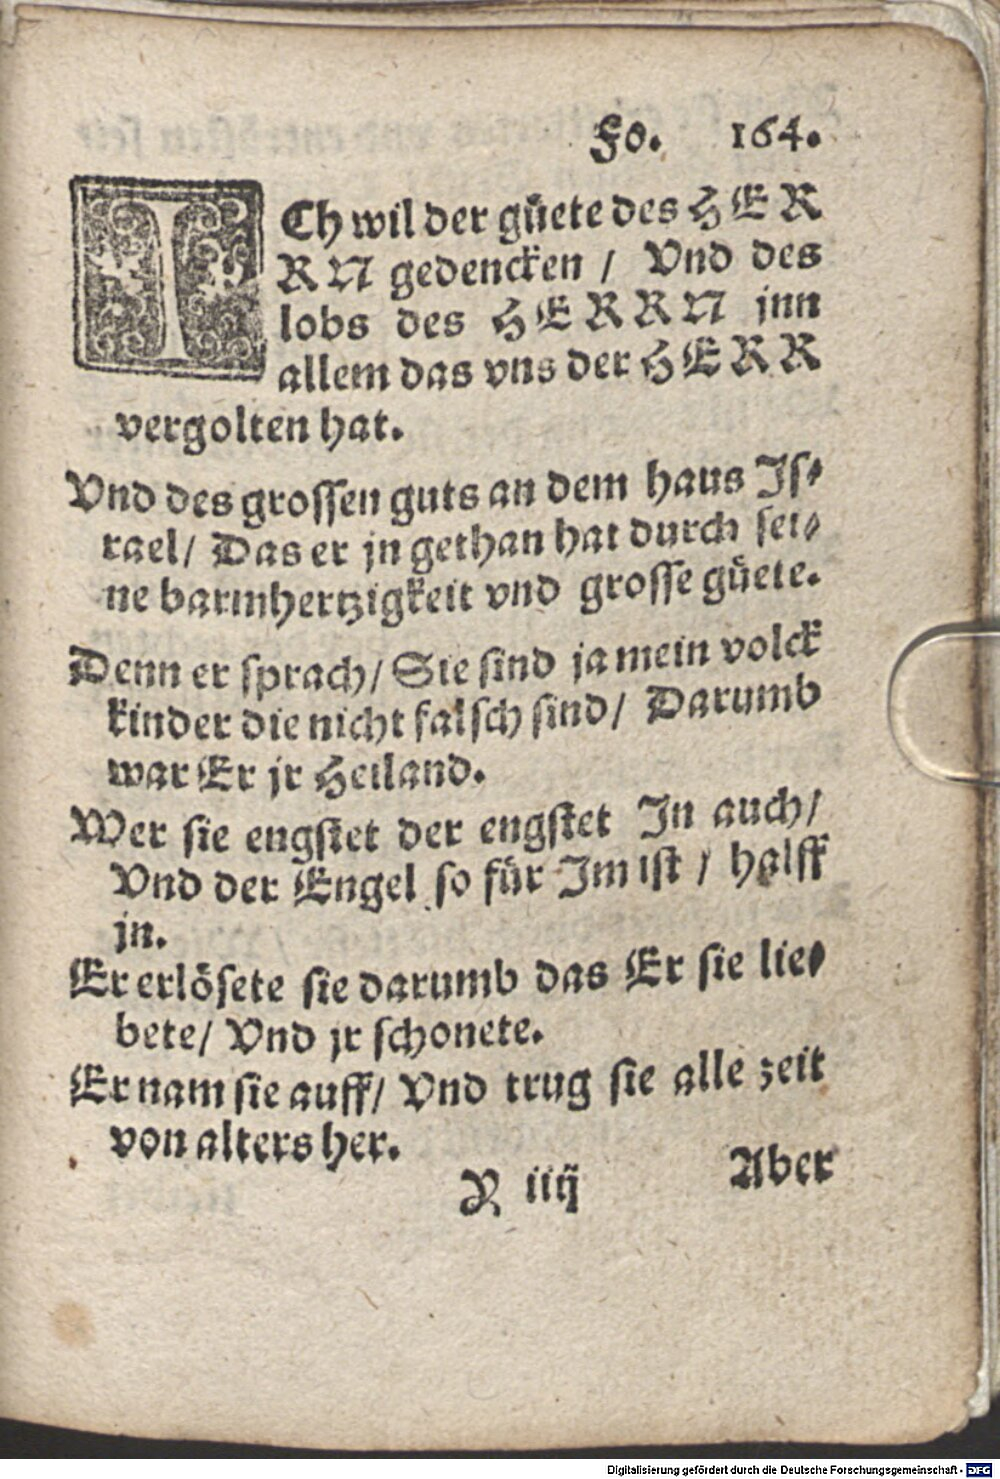 Fo. 164.
ICh wil der güete des HER
RN gedencken / Vnd des
lobs des HERRN jnn
allem das vns der HERR
vergolten hat.
Vnd des grossen guts an dem haus Js⸗
rael/ Das er jn gethan hat durch sei⸗
ne barmhertzigkeit vnd grosse güete.
Denn er sprach/ Sie sind ja mein volck
kinder die nicht falsch sind/ Darumb
war Er jr Heiland.
Wer sie engstet der engstet Jn auch/
Vnd der Engel so für Jm ist / halff
jn.
Er erlösete sie darumb das Er sie lie⸗
bete/ Vnd jr schonete.
Er nam sie auff/ Vnd trug sie alle zeit
von alters her.
Y iiij Aber
Digitalisierung gefördert durch die Deutsche Forschungsgemeinschaft - DFG